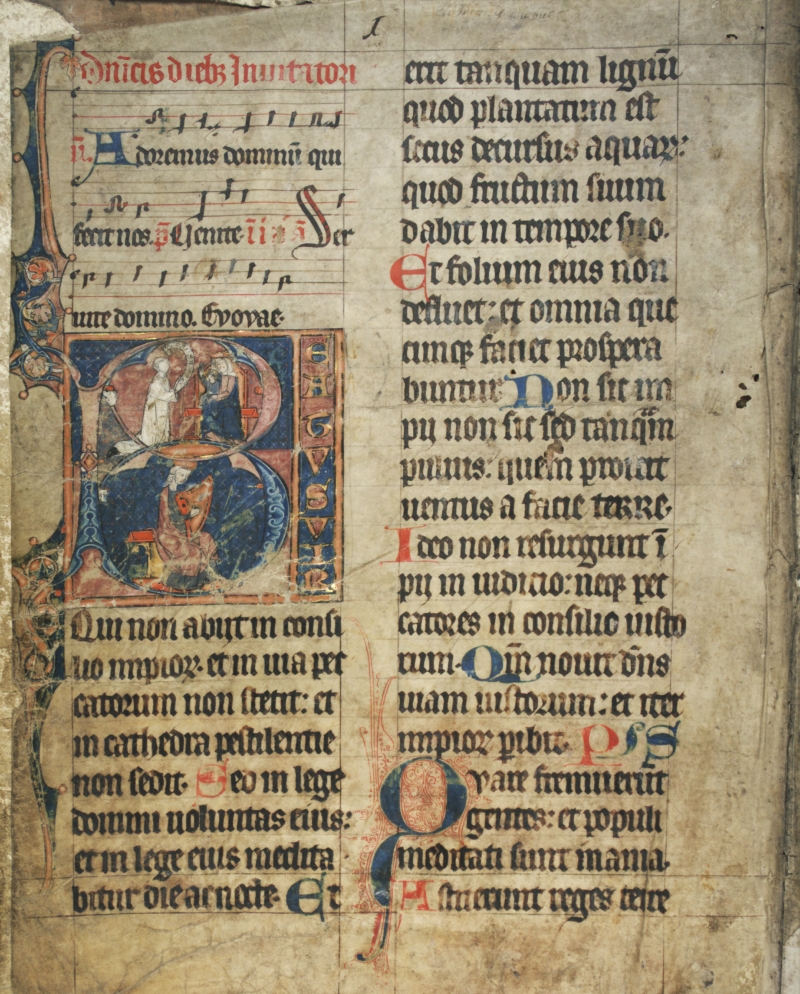 1
Dn̄icis dieb⁊ Inuitatori
Adoremus dominū qui
fecit nos. p̄. Uenite. Ser
uite domino. Evovae.
BEATUS UIR
Qui non abijt in consi
lio impioꝝ. et in uia pec
catorum non stetit: et
in cathedra pestilentie
non sedit. Sed in lege
domini uoluntas eius:
et in lege eius medita
bitur die ac nocte. Et
erit tanquam lignū
quod plantatum est
secus decursus aquaꝝ:
quod fructum suum
dabit in tempore suo.
Et folium eius non
defluet: et omnia que
cumqꝫ faciet prospera
buntur. Non sic im
pij non sic sed tanq̄m
puluis: quem proicit
uentus a facie terre.
Ideo non resurgunt ī
pij in iudicio: neqꝫ pec
catores in consilio iusto
rum. Qm̄ nouit dn̄s
uiam iustorum: et iter
impioꝝ ꝑibit. PS
Qvare fremuerūt
gentes: et populi
meditati sunt inania.
Astiterunt reges terre